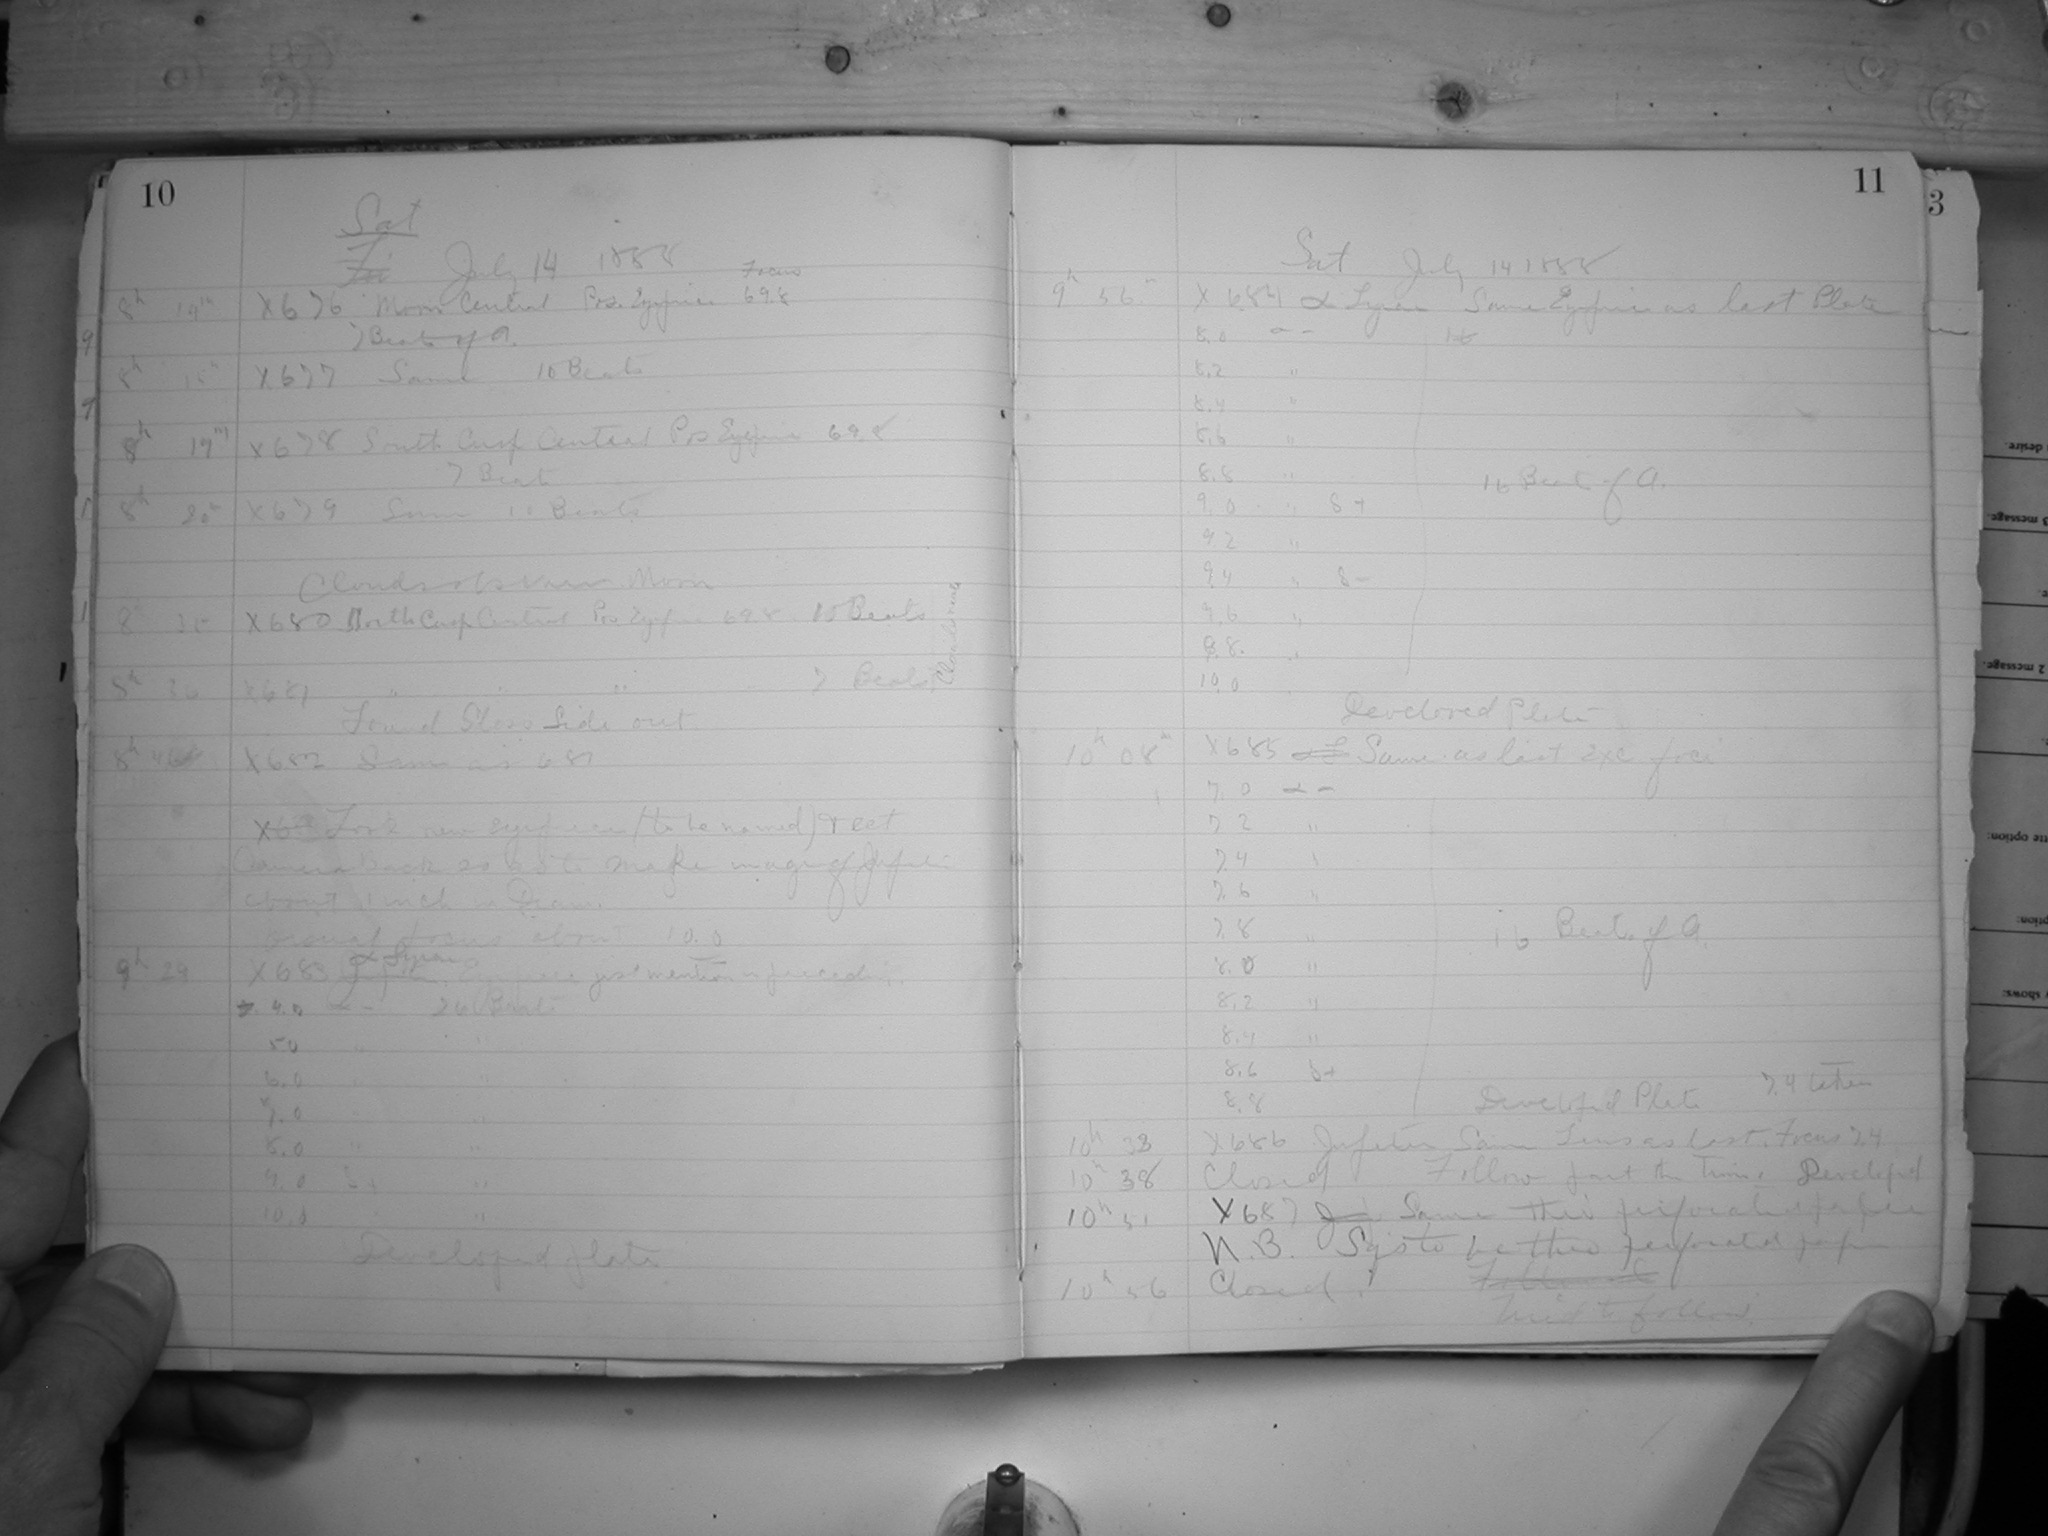 10
Sat
Fri July 14 1888
Focus
8h 14m X676 Moon Central Pos Eyepiece 69.8
7 Beats of A.
8h 15m X677 Same 10 Beats
8h 19m X678 South Cusp Central Pos Eyepiece 69.8
7 Beats
8h 20m X679 Same 10 Beats
Clouds obscure Moon
8 25 X680 North Cusp Central Pos Eyepiece 69.8 10 Beats
8h X681 " " " 7 Beats
Found Glass Side out
8h 46 X682 Same as 681
X68 Took new eyepiece (to be named) & set
Camera back so as to make image of Jupiter
about 1 inch in Diam.
focus about 10.0
α Lyrae
9h 29 X683 Jupiter Eyepiece just mentioned preceding.
4.0 α - 26 Beats
5.0 " "
6.0 " "
7.0 " "
8.0 " "
9.0 "
10.0 "
Developed plate
11
3
Sat July 14 1888
9h 56m X684 α Lyrae Same Eyepiece as last Plate
8.0 α - 16
8.2 "
8.4 "
8.6 "
8.8 "
16 Beats of A.
9.0 " 8+
9.2 "
9.4 " 8-
9.6 "
9.8 "
10.0
Developed Plate
10h 08m X685 α L Same as last exc foci
7.0 α -
7.2 "
7.4 "
7.6 "
7.8 "
16 Beats of A.
8.0 "
8.2 "
8.4 "
8.6 8+
8.8
Developed Plate 7.4 taken
10h 33 X686 Jupiter Same Lens as last. Focus 7.4
10h 38 Closed Follow part the time. Developed
10h 51 X687 Ju Same thro perforated paper
N.B. Sys to be thro perforated paper
10h 56 Closed. Followed
Tried to follow